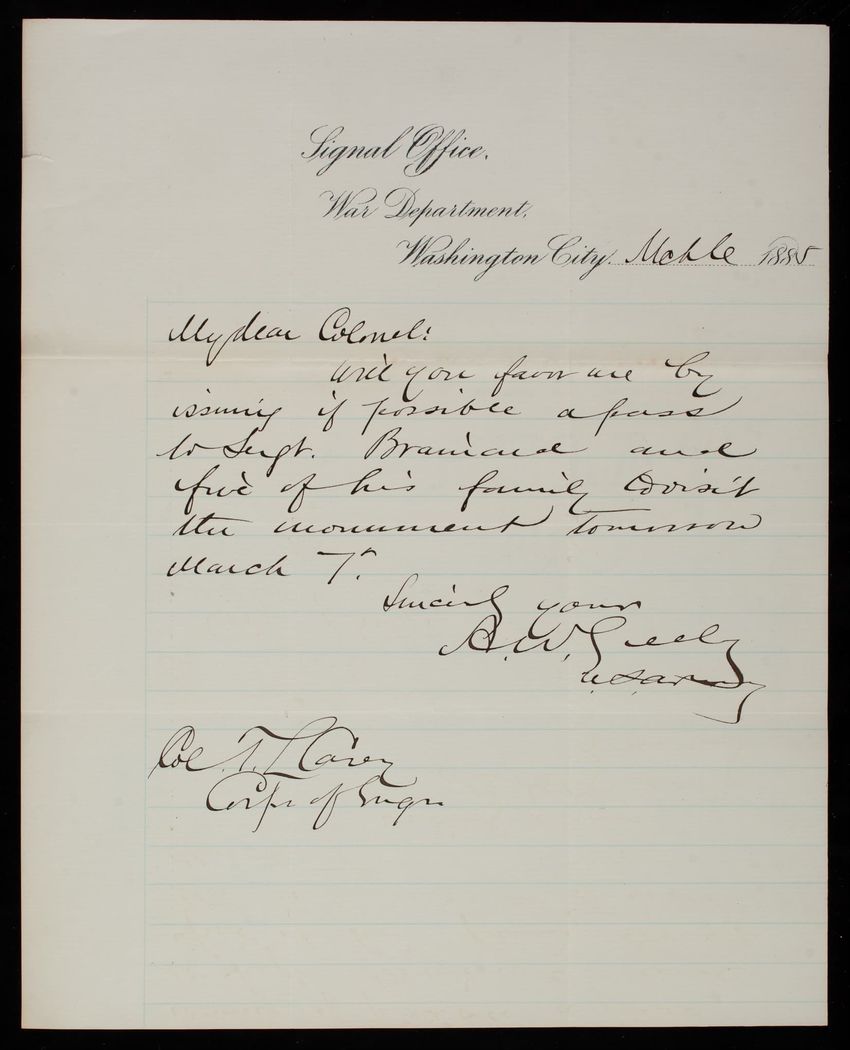 Signal Office.
War Department,
Washington City. Mch 6 1885
My dear Colonel:
Will you favor me by
issuing if possible a pass
to Sergt. Brainard and
five of his family to visit
the monument tomorrow
March 7th.
Sincerely yours
A. W. Greely
U.S. Army
Col. T. L. Casey
Corps of Engrs